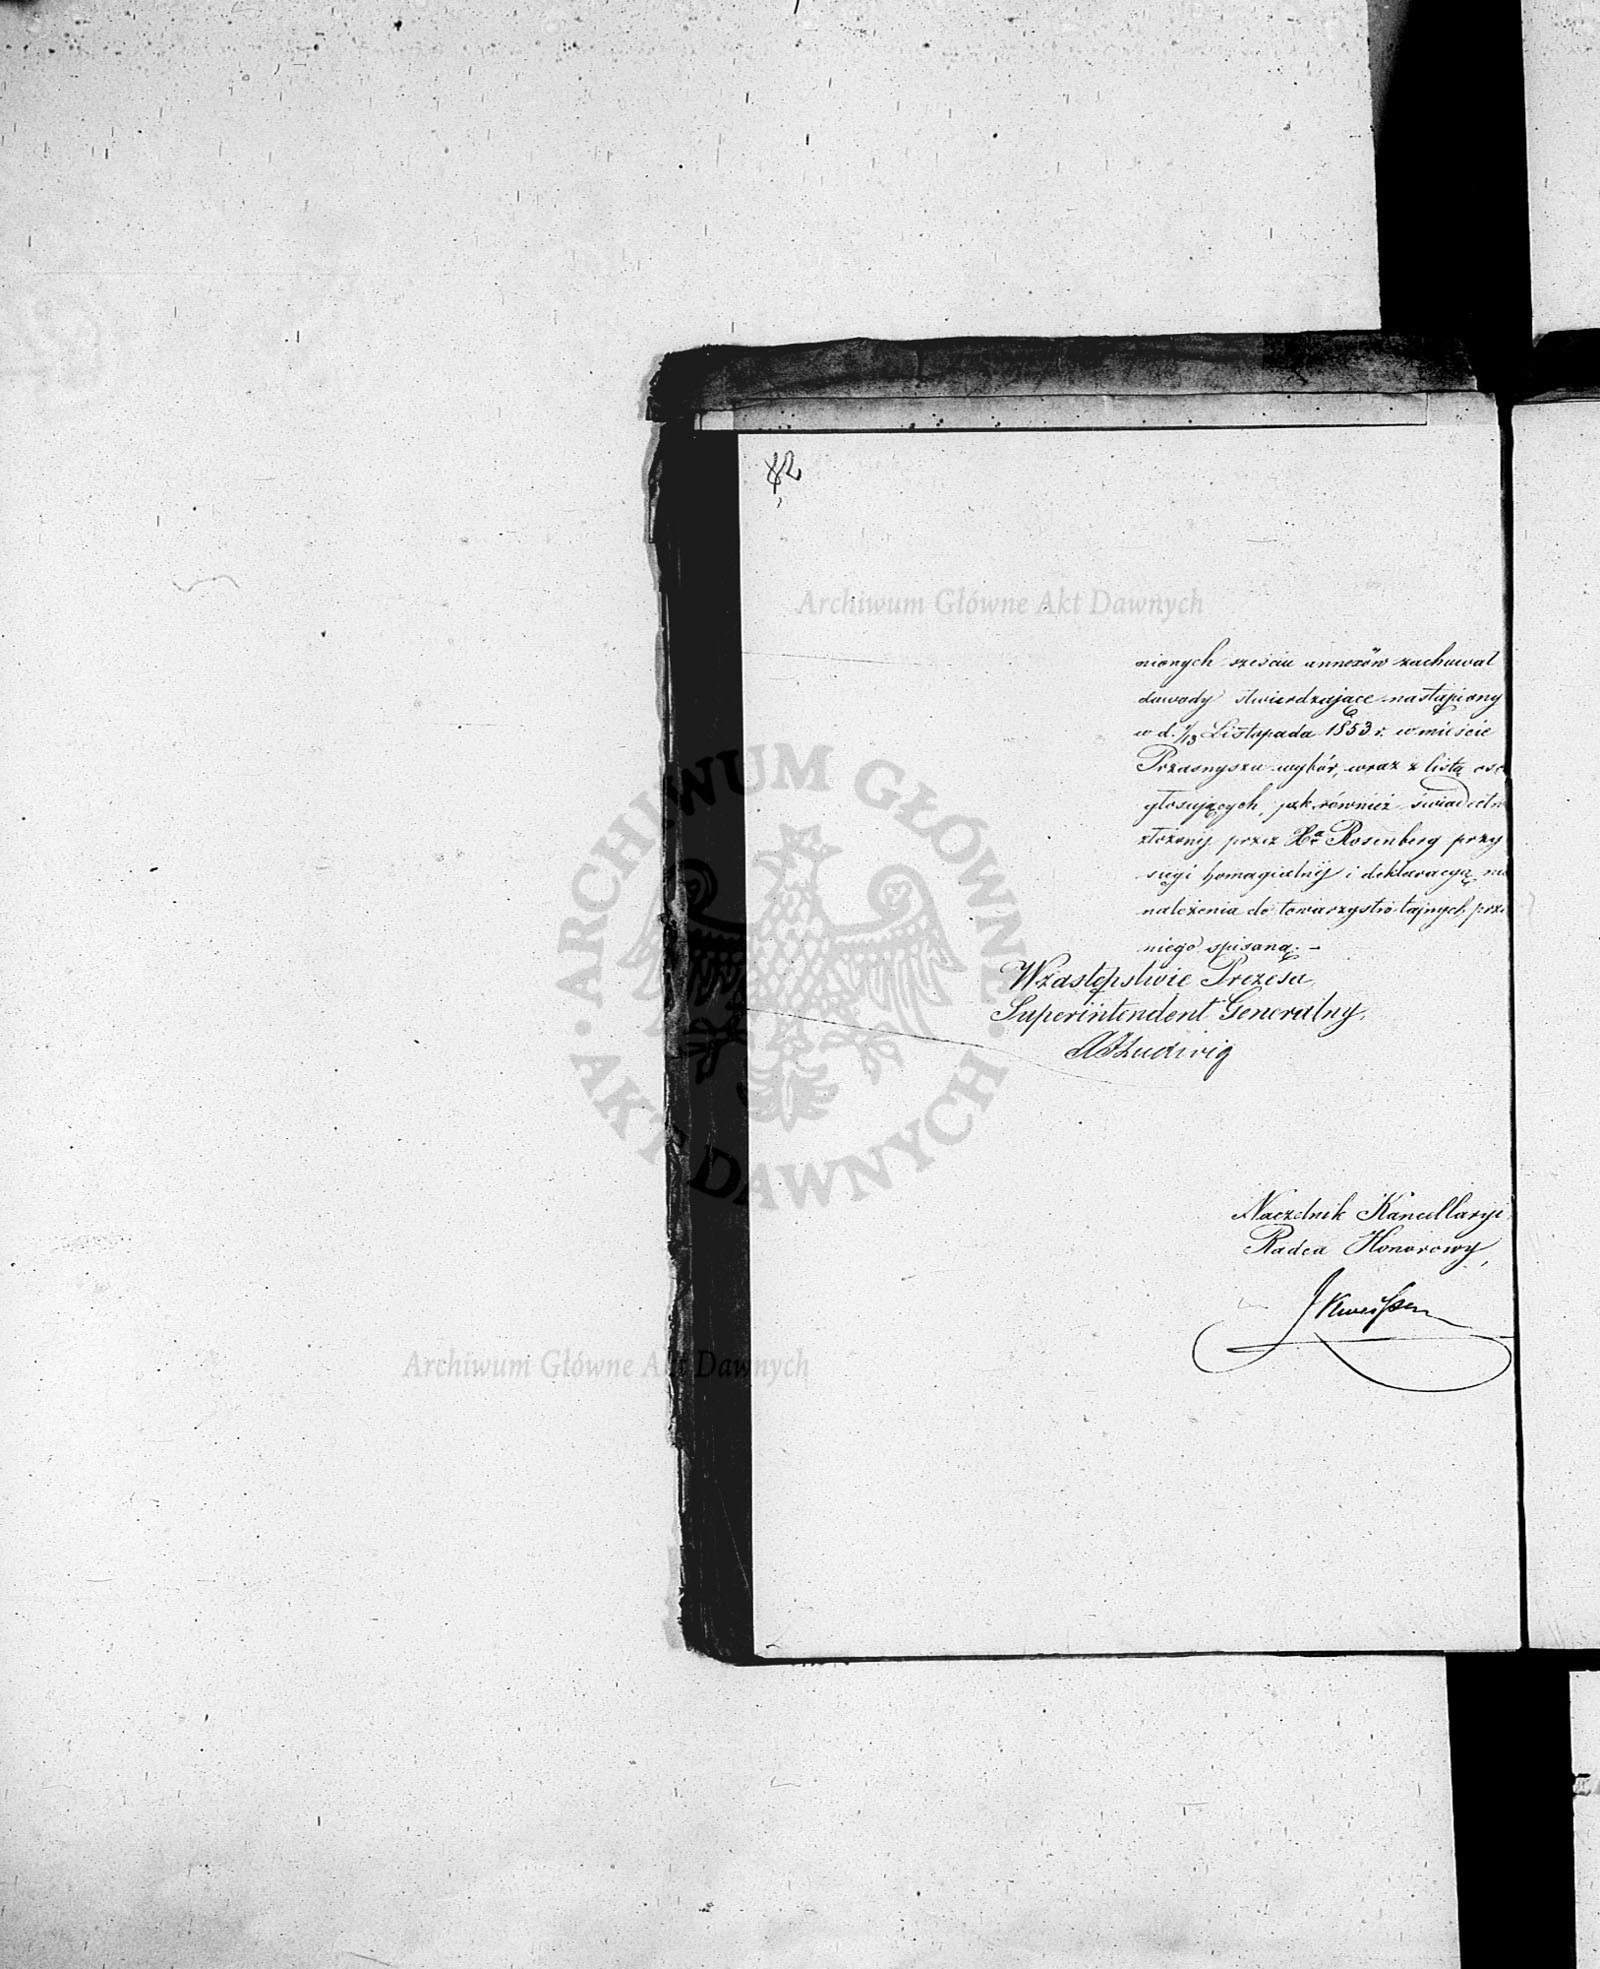 42
Archiwum Główne Akt Dawnych
nionych sześciu annexów zachował
dowody stwierdzające nastąpiony
w d. 1/13 Listopada 1853 r. w mieście
Przasnyszu wybór, wraz z listą osó
głosujących, jak również świadectw
złożonej przez Xa Rosenberg przy
sięgi homagialnej i deklaracyą nie
należenia do towarzystw tajnych prze
niego spisaną. –
W zastępstwie Prezesa,
Superintendent Generalny,
Ludwig
Naczelnik Kancellaryi
Radca Honorowy,
ARCHIWUM GŁÓWNE AKT DAWNYCH
Archiwum Główne Akt Dawnych